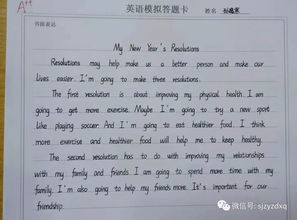 A++
英语模拟答题卡 姓名
书面表达
My New Year's Resolutions
Resolutions may help make us a better person and make our
lives easier. I'm going to make three resolutions.
The first resolution is about improving my physical health. I am
going to get more exercise. Maybe I'm going to try a new sport
like playing soccer. And I'm going to eat healthier food. I think
more exercise and healthier food will help me to keep healthy.
The second resolution has to do with improving my relationships
with my family and friends. I am going to spend more time with my
family. I'm also going to help my friends more. It's important for our
friendship.
微信号: sjzyzdxq